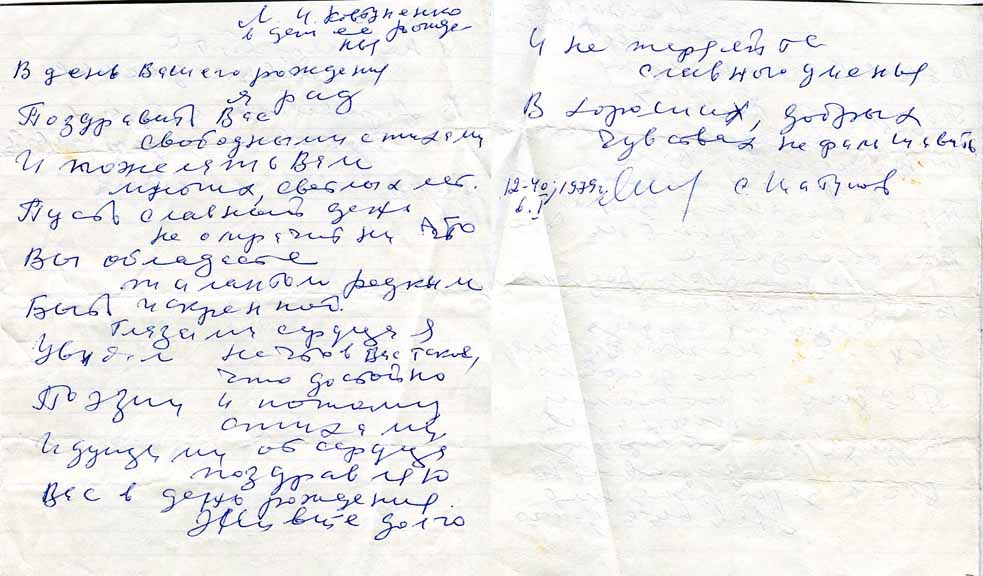 Л. И. Ковзиенко
в день ее рожде
ния
В день Вашего рождения
я рад
Поздравить Вас
свободными стихами
И пожелять Вам
многих, светлых лет.
Пусть славный день
не омрачит ни что
Вы обладаете
талантом редким
Быть искренной.
Глазами сердца я
Увидел нечто в Вас такое,
что достойно
Поэзии и потому
стихами,
Идущими от сердца
поздравляю
Вас в день рождения.
Живите долго
И не теряйте
славного уменья
В хороших, добрых
чувствах не фальшивить
12-40, 1979г.
6.I